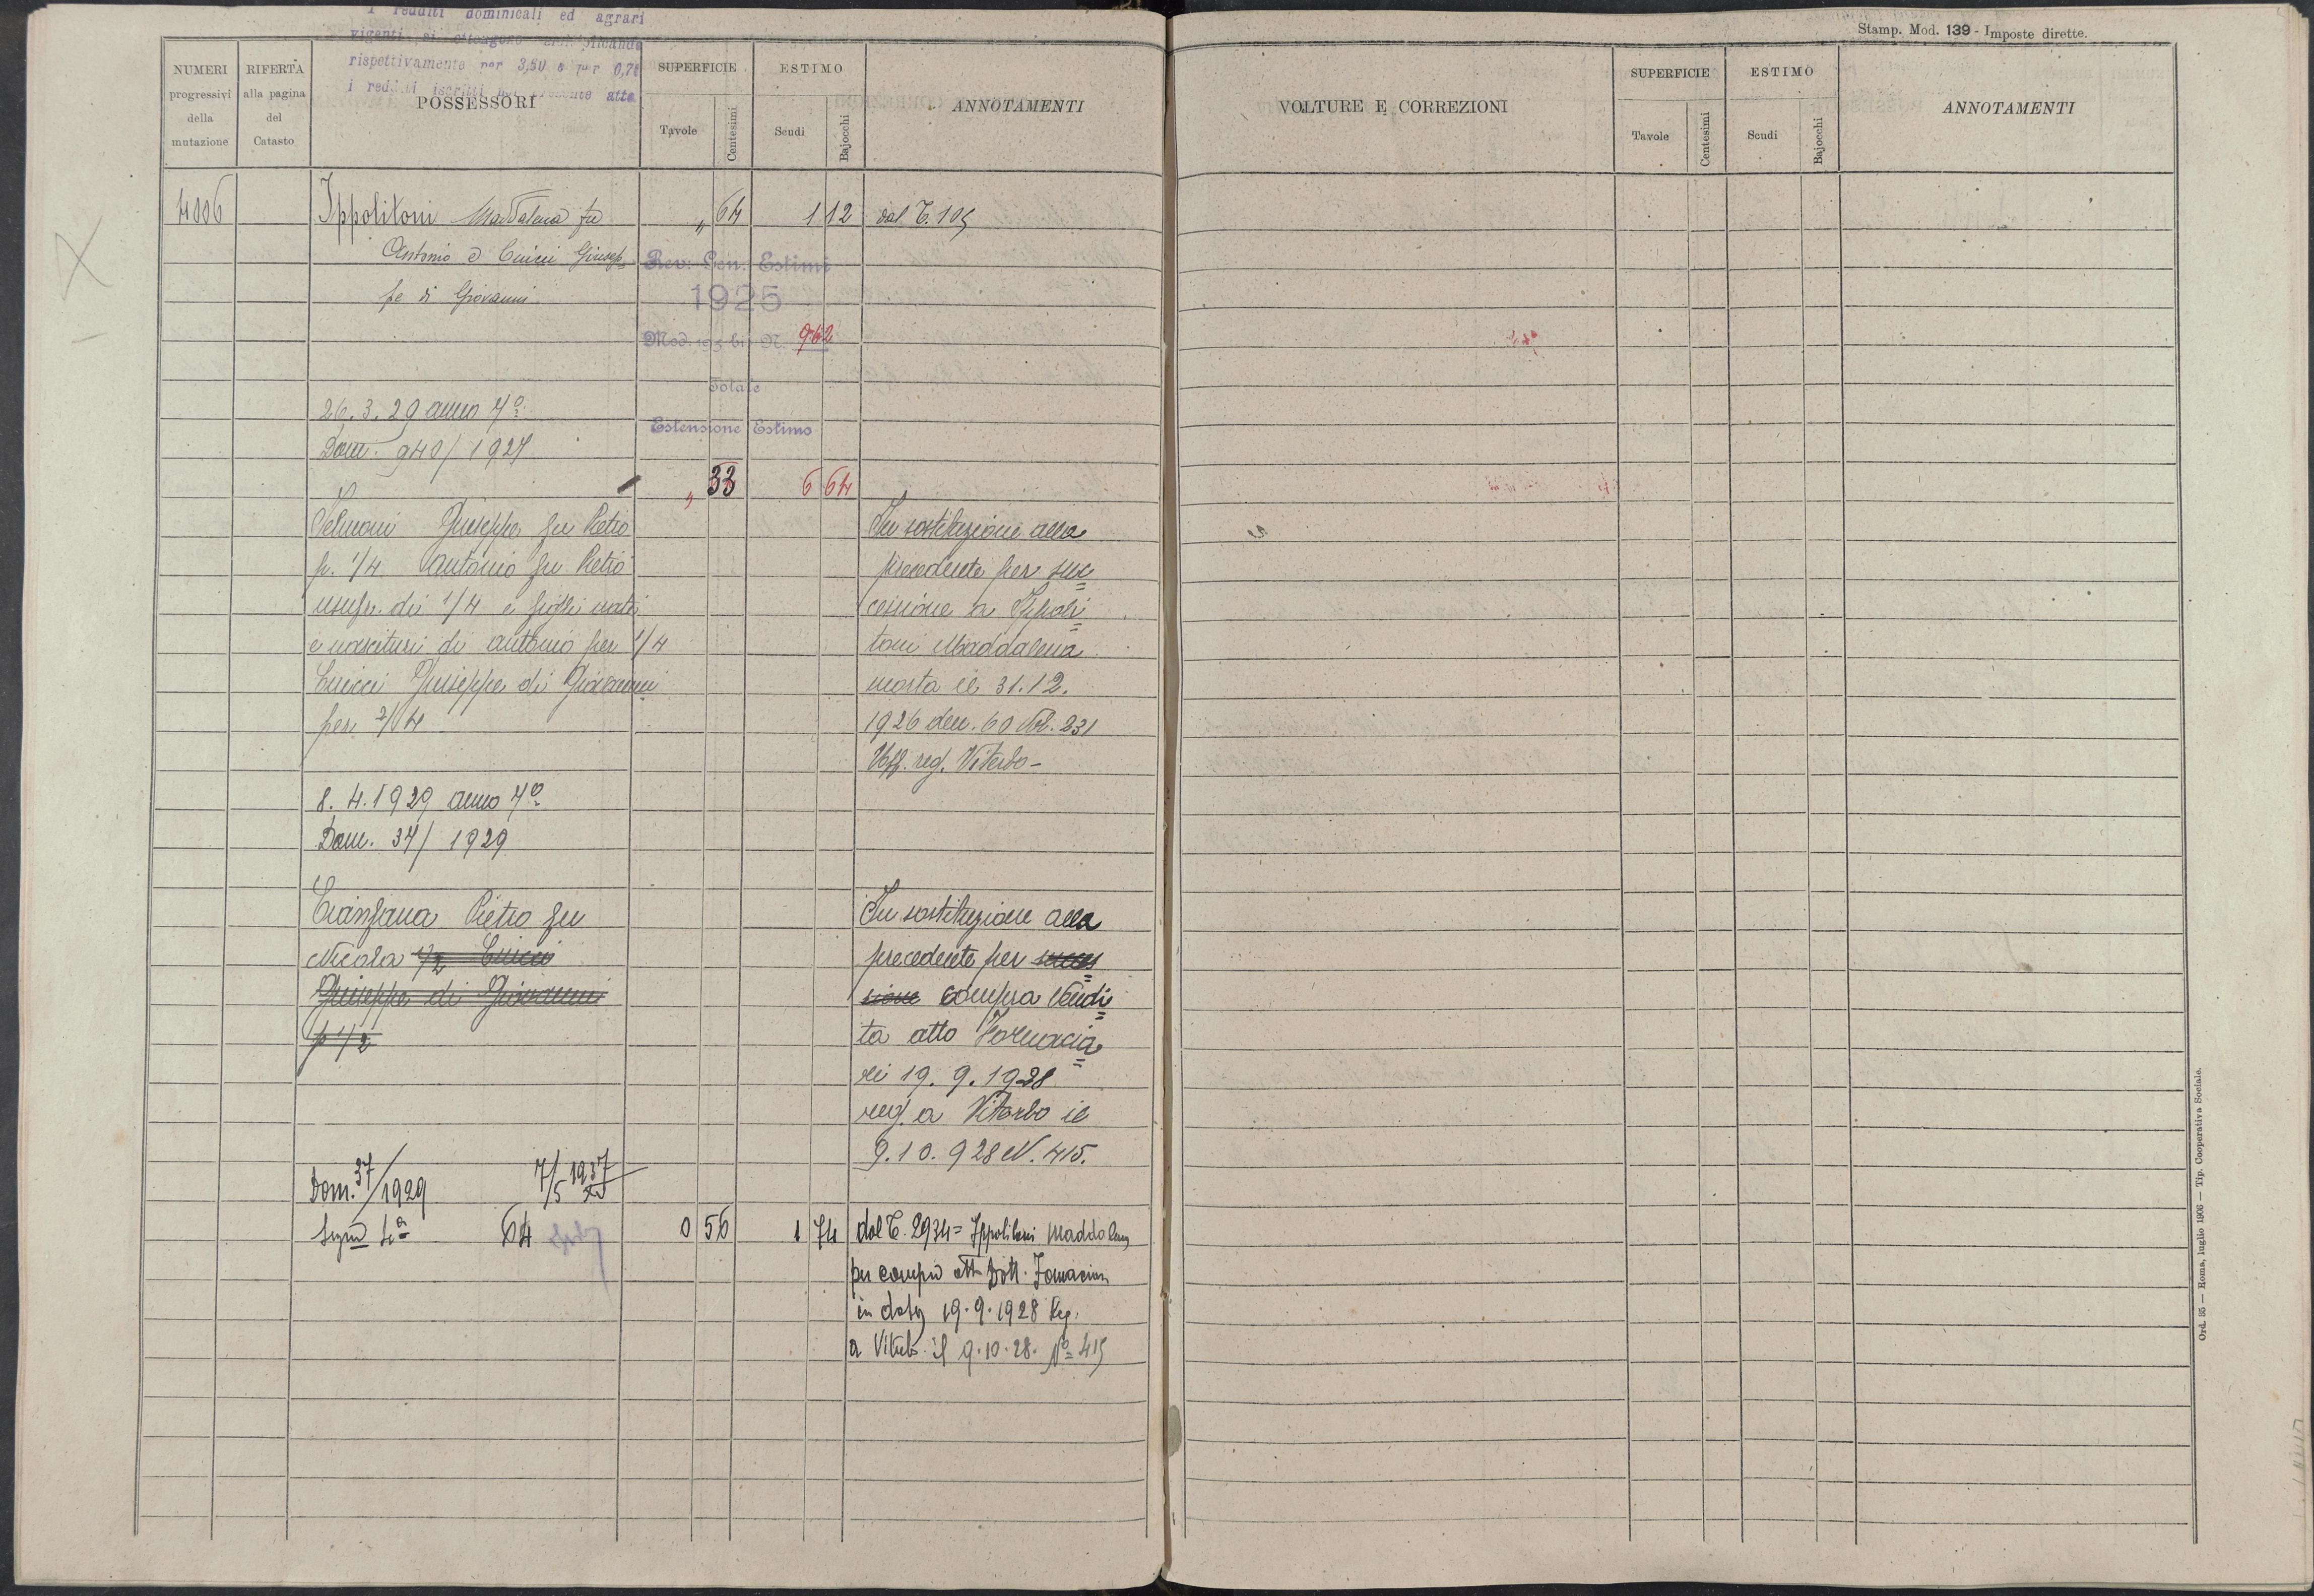 I redditi dominicali ed agrari
vigenti si ottengono
rispettivamente per 3,50 e per 0,75
i redditi iscritti nel presente atto
Stamp. Mod. 139 - Imposte dirette.
NUMERI progressivi della mutazione
RIFERTA alla pagina del Catasto
POSSESSORI
SUPERFICIE
Tavole
Centesimi
ESTIMO
Scudi
Bajocchi
ANNOTAMENTI
VOLTURE E CORREZIONI
SUPERFICIE
Tavole
Centesimi
ESTIMO
Scudi
Bajocchi
ANNOTAMENTI
Ippolitoni Maddalena fu „ 64 1 12 dal T. 105
Antonio e Cuicci Giusep=
pe di Giovanni
Rev: Gen. Estimi
1925
Mod. 105 bis N. 962
Totale
Estensione Estimo
26. 3. 29 anno 7º
Dom. 940/1927
„ 33 6 64
Giuseppe fu Pietro
p. 1/4 Antonio fu Pietro
usufr. di 1/4 e figli nati
e nascituri di Antonio per 1/4
Cuicci Giuseppe di Giovanni
per 2/4
In sostituzione alla
precedente per suc=
cessione a Ippoli=
toni Maddalena
morta il 31.12.
1926 den. 60 Vol. 231
Uff. reg. Viterbo -
8. 4. 1929 anno 7º
Dom. 37/1929
Cianfana Pietro fu
Nicola 1/2 Cuicci
Giuseppe di Giovanni
p 1/2
In sostituzione alla
precedente per succes=
sione compra vendi=
ta atto Fornacia=
ri 19. 9. 1928
reg. a Viterbo il
9. 10. 928 N. 415.
Dom. 37/1929 7/5 1937 XV
64 0 56 1 74 dal T. 2934 = Ippolitoni Maddalena
per compra atto Dott. Fornaciari
in data 19. 9. 1928 Reg.
a Viterbo il 9. 10. 28. Nº 415
Ord. 85 — Roma, luglio 1906 — Tip. Cooperativa Sociale.